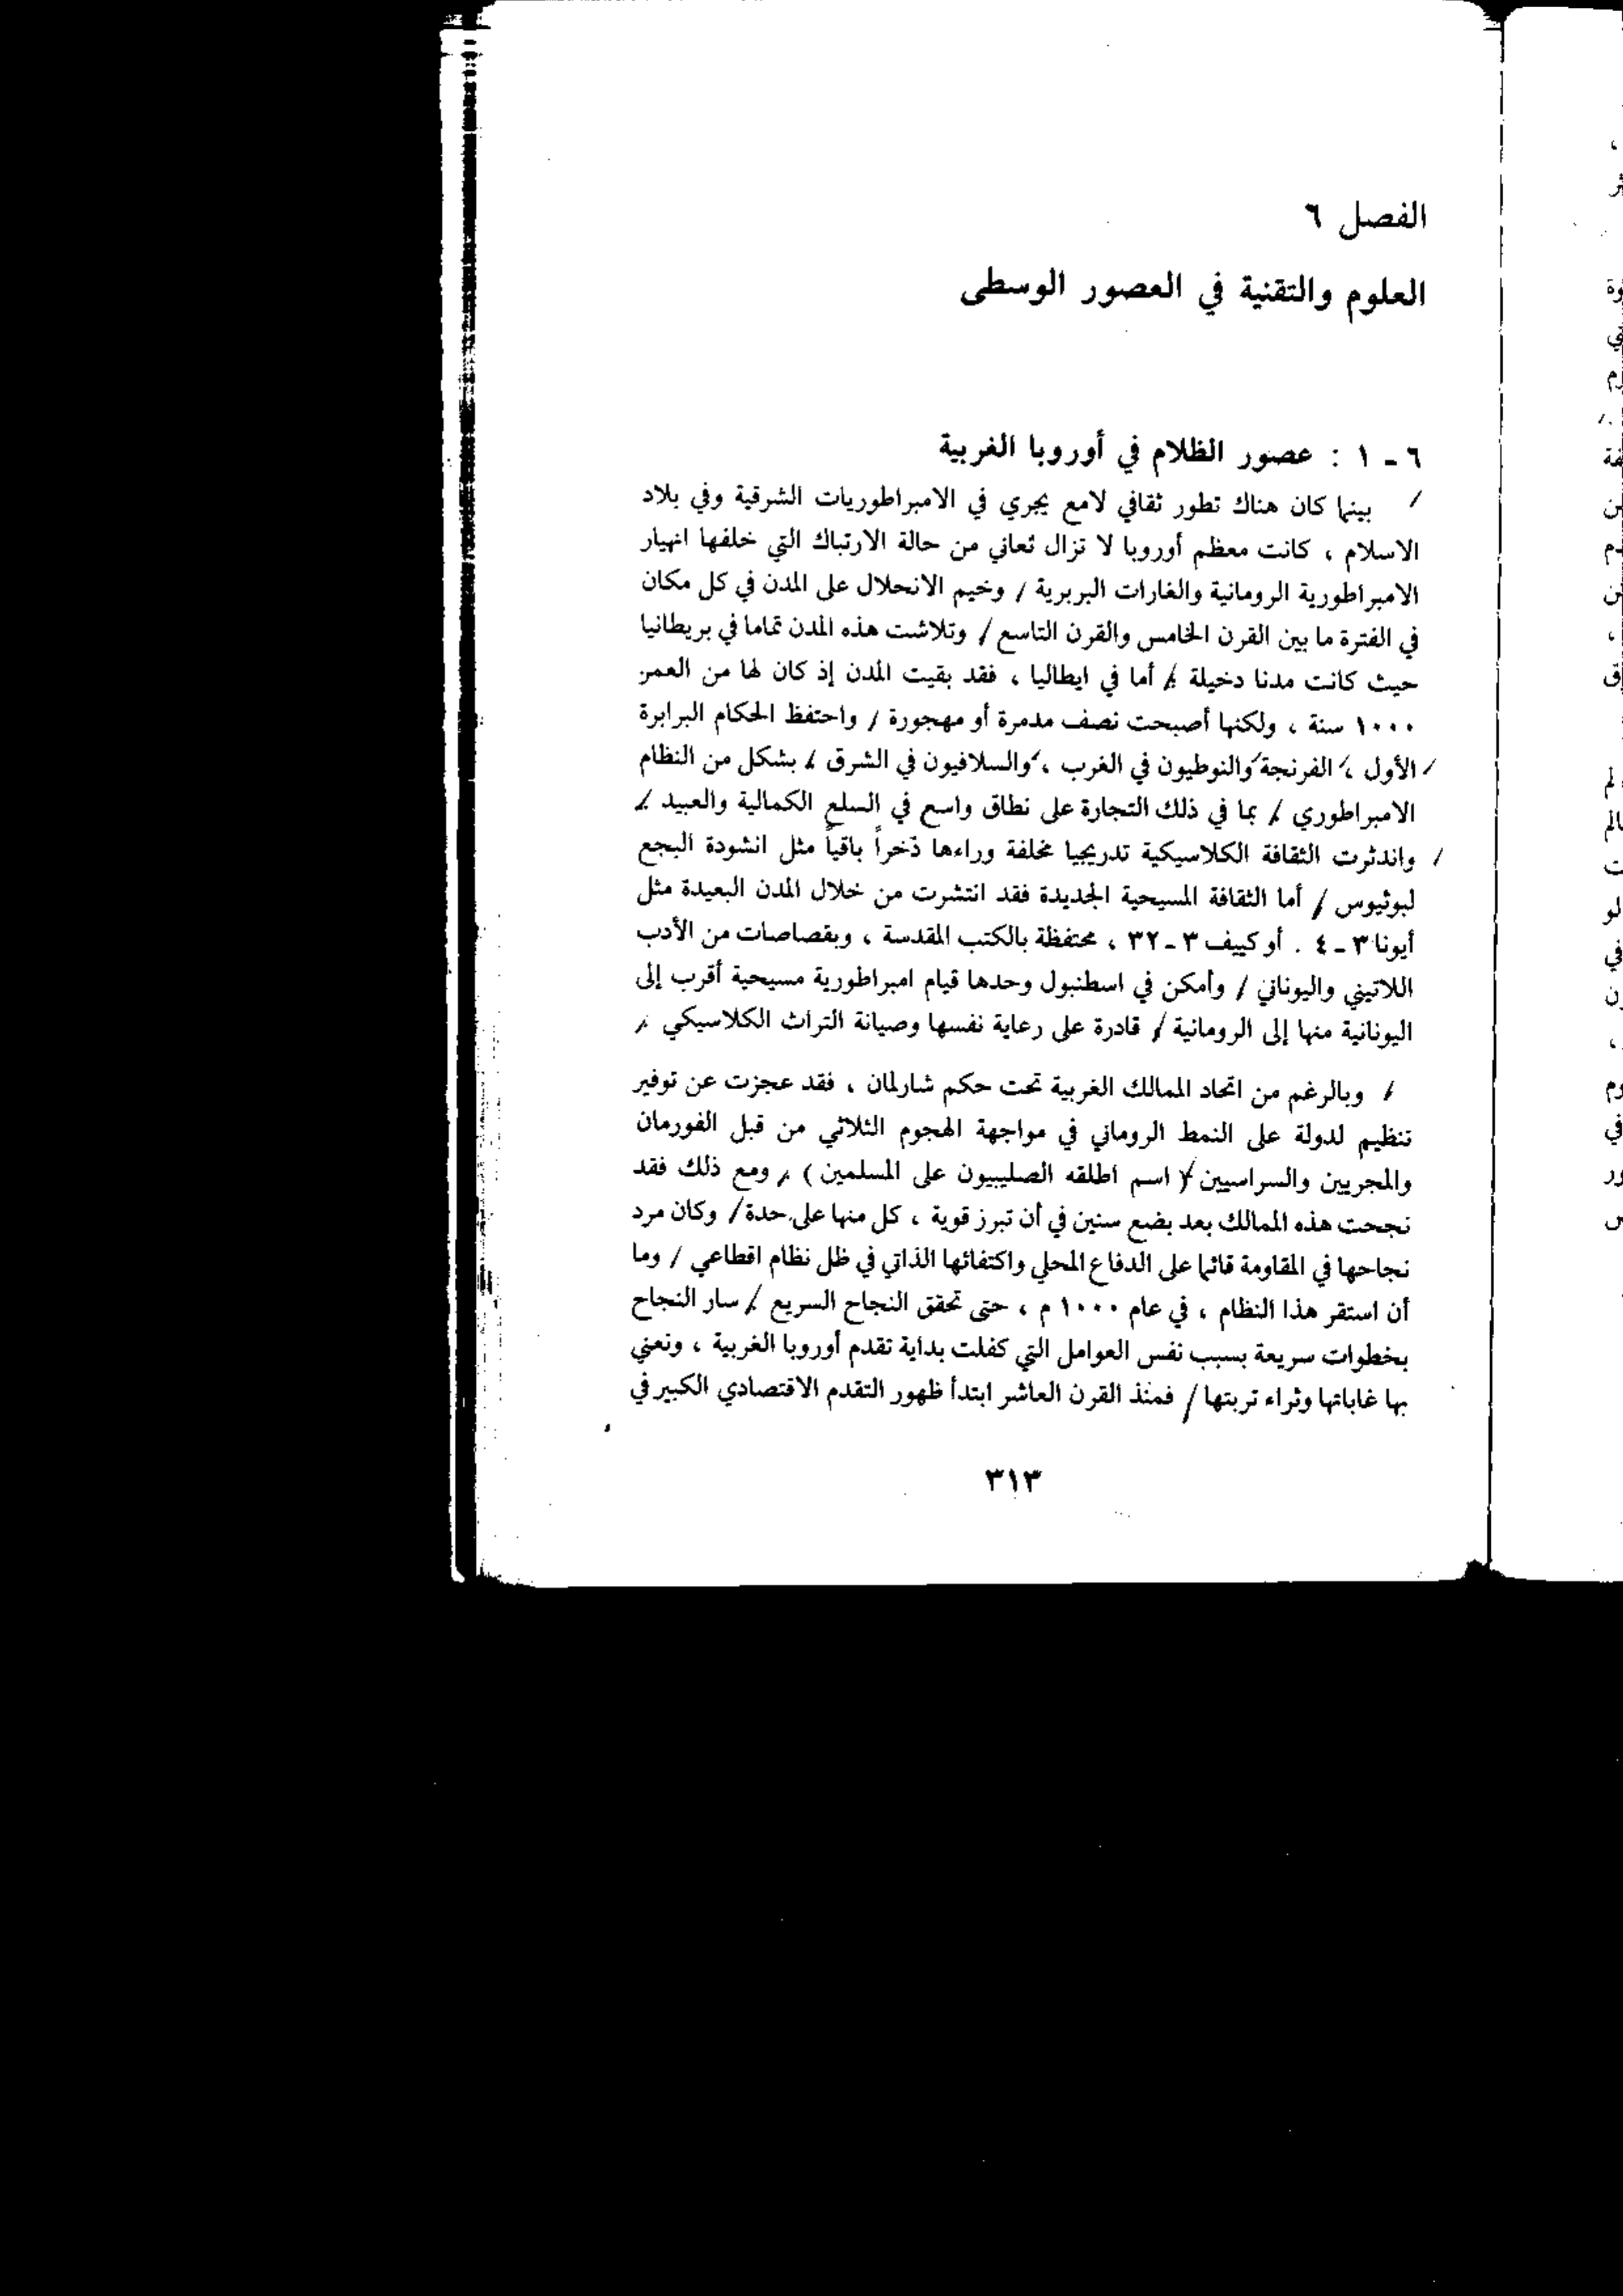 الفصل ٦
العلوم والتقنية في العصور الوسطى
٦ - ١ : عصور الظلام في أوروبا الغربية
بينما كان هناك تطور ثقافي لامع يجري في الامبراطوريات الشرقية وفي بلاد
الاسلام ، كانت معظم أوروبا لا تزال تعاني من حالة الارتباك التي خلفها انهيار
الامبراطورية الرومانية والغارات البربرية / وخيم الانحلال على المدن في كل مكان
في الفترة ما بين القرن الخامس والقرن التاسع / وتلاشت هذه المدن تماما في بريطانيا
حيث كانت مدنا دخيلة / أما في ايطاليا ، فقد بقيت المدن إذ كان لها من العمر
١٠٠٠ سنة ، ولكنها أصبحت نصف مدمرة أو مهجورة / واحتفظ الحكام البرابرة
الأول ، الفرنجة والنوطيون في الغرب ، والسلافيون في الشرق / بشكل من النظام
الامبراطوري / بما في ذلك التجارة على نطاق واسع في السلع الكمالية والعبيد /
/ واندثرت الثقافة الكلاسيكية تدريجيا مخلفة وراءها ذخراً باقياً مثل انشودة البجع
لبوثيوس / أما الثقافة المسيحية الجديدة فقد انتشرت من خلال المدن البعيدة مثل
أيونا ٣ - ٤ . أو كييف ٣ - ٣٢ ، محتفظة بالكتب المقدسة ، وبقصاصات من الأدب
اللاتيني واليوناني / وأمكن في اسطنبول وحدها قيام امبراطورية مسيحية أقرب إلى
اليونانية منها إلى الرومانية / قادرة على رعاية نفسها وصيانة التراث الكلاسيكي /
/ وبالرغم من اتحاد الممالك الغربية تحت حكم شارلمان ، فقد عجزت عن توفير
تنظيم لدولة على النمط الروماني في مواجهة الهجوم الثلاثي من قبل الفورمان
والمجريين والسراسيين ( اسم اطلقه الصليبيون على المسلمين ) / ومع ذلك فقد
نجحت هذه الممالك بعد بضع سنين في أن تبرز قوية ، كل منها على حدة / وكان مرد
نجاحها في المقاومة قائما على الدفاع المحلي واكتفائها الذاتي في ظل نظام اقطاعي / وما
أن استقر هذا النظام ، في عام ١٠٠٠ م ، حتى تحقق النجاح السريع / سار النجاح
بخطوات سريعة بسبب نفس العوامل التي كفلت بداية تقدم أوروبا الغربية ، ونعني
بها غاباتها وثراء تربتها / فمنذ القرن العاشر ابتدأ ظهور التقدم الاقتصادي الكبير في
٣١٣